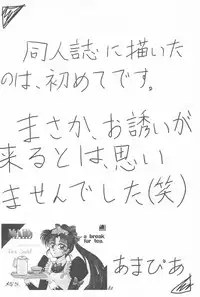 同人誌に描いた
のは、初めてです。
まさか、お誘いが
来るとは、思い
ませんでした(笑)
a break
for tea.
あまぴあ